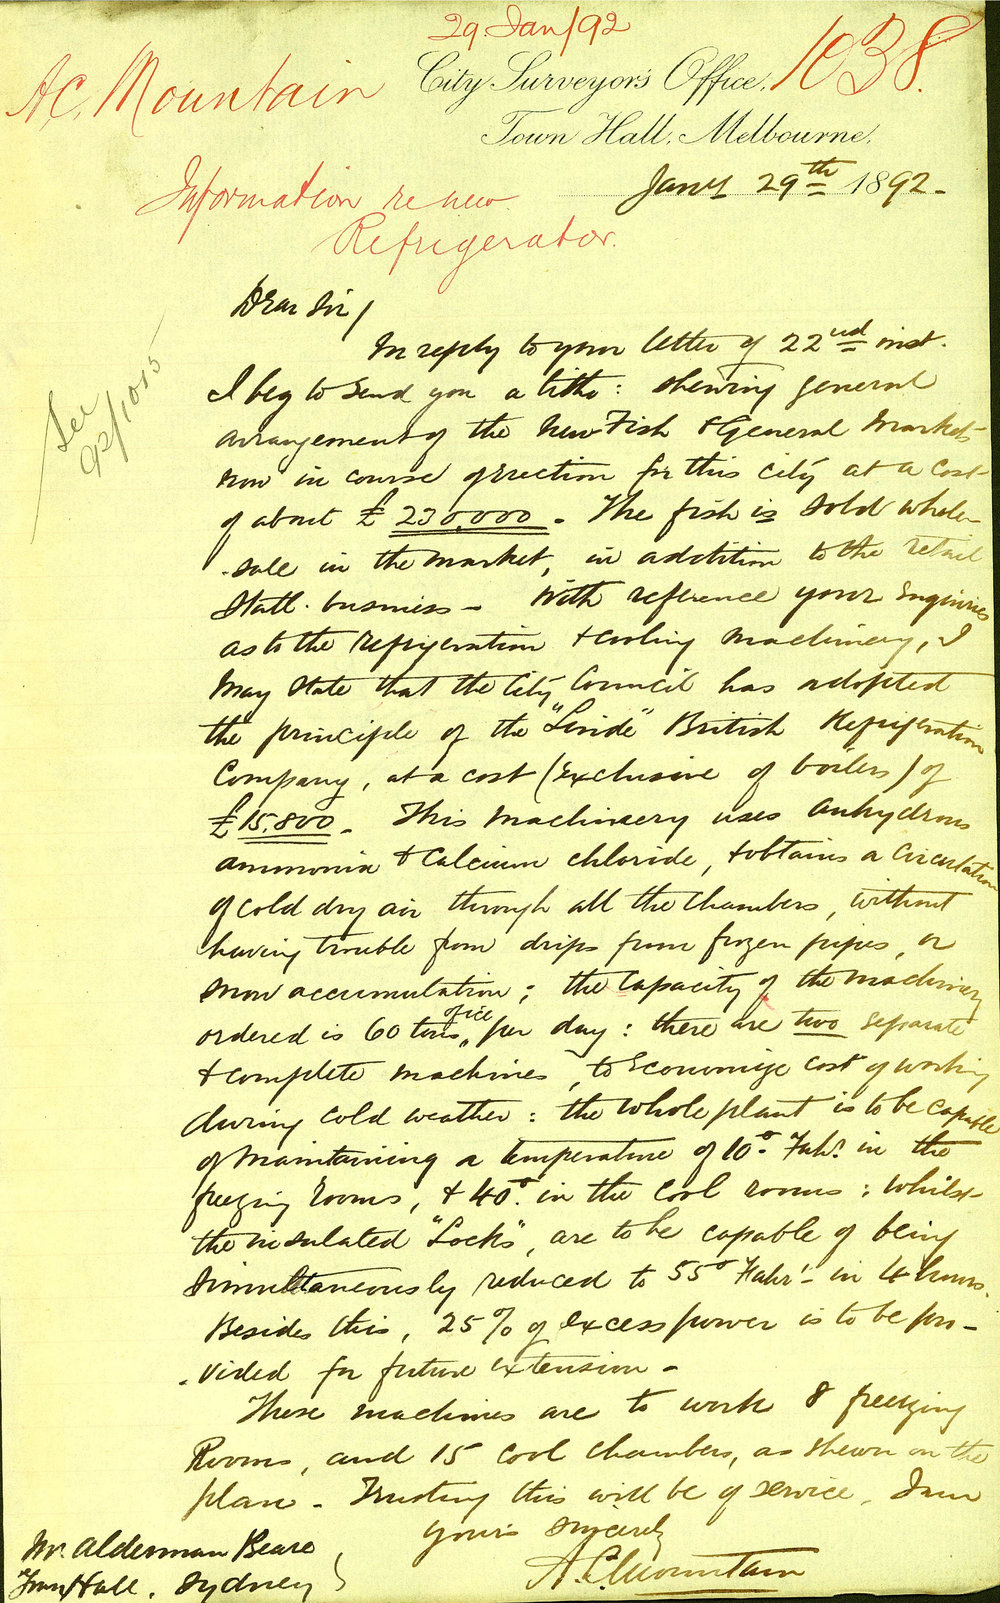 29 Jan/92
1038.
A.C. Mountain
City Surveyor's Office,
Town Hall, Melbourne,
Information re new
Refrigerator.
Jany 29th 1892-
See
92/1015
Dear Sir/
In reply to your letter of 22nd inst.
I beg to send you a litho: shewing general
arrangement of the New Fish & General Markets
now in course of erection for this city at a cost
of about £230,000. The fish is sold whole-
-sale in the market, in addition to the retail
Stall business - With reference your enquiries
as to the refrigeration & cooling machinery, I
may state that the City Council has adopted
the principle of the "Linde" British Refrigeration
Company, at a cost (exclusive of boilers) of
£15.800. This machinery uses anhydrous
ammonia & Calcium chloride, & obtains a circulation
of cold dry air through all the Chambers, without
having trouble from drips from frozen pipes, or
snow accumulation; the capacity of the machinery
ordered is 60 tons of ice per day: there are two separate
& complete machines, to economize cost of working
during cold weather: the whole plant is to be capable
of maintaining a temperature of 10° Fahr. in the
freezing rooms, & 40° in the cool rooms; whilst
the insulated "Locks", are to be capable of being
simultaneously reduced to 55° Fahr- in 4 hours.
Besides this, 25% of excess power is to be pro-
-vided for future extension -
These machines are to work 8 freezing
Rooms, and 15 cool chambers, as shewn on the
plan - Trusting this will be of service, I am
yours sincerely
A.C. Mountain
Mr. Alderman Beare
Town Hall. Sydney